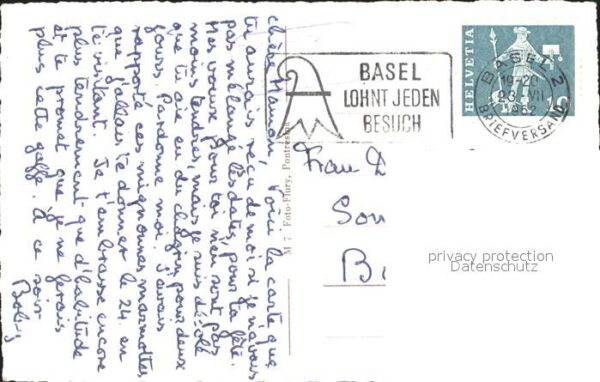 chère Maman, Voici la carte que
tu aurais reçu de moi si je n'avais
pas mélangé les dates, pour ta fête.
Mes voeux pour toi n'en sont pas
moins tendres, mais je suis désolé
que tu aie eu du chagrin pour deux
jours. Pardonne moi. J'avais
rapporté ces mignonnes marmottes
que j'allais te donner le 24. en
te visitant. Je t'embrasse encore
plus tendrement que d'habitude
et te promet que je ne ferais
plus cette gaffe. A ce soir
M 7 Foto-Flury, Pontresina
BASEL
LOHNT JEDEN
BESUCH
HELVETIA
10
BASEL 2
19-20
23 VII
1962
BRIEFVERSAND
Frau D
Son
B
privacy protection
Datenschutz